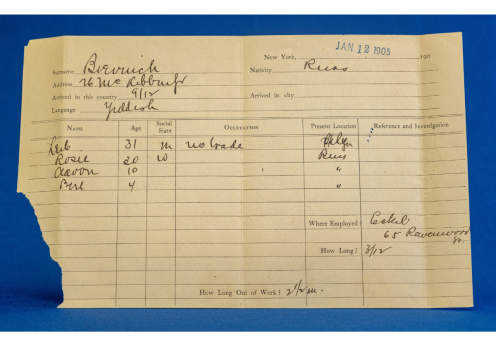 JAN 12 1905
New York, 190
Surname
Nativity Russ
Address 76 McKibbin St
Arrived in this country 9/12 Arrived in city
Language Yiddish
Name Age Social State Occupation Present Location Reference and Investigation
Leib 31 m no trade
Rosie 20 W Russ
Aavon 10 "
Berl 4 "
Where Employed?
65 Ravenwood St.
How Long? 3/12
How Long Out of Work? 2 1/2 m.